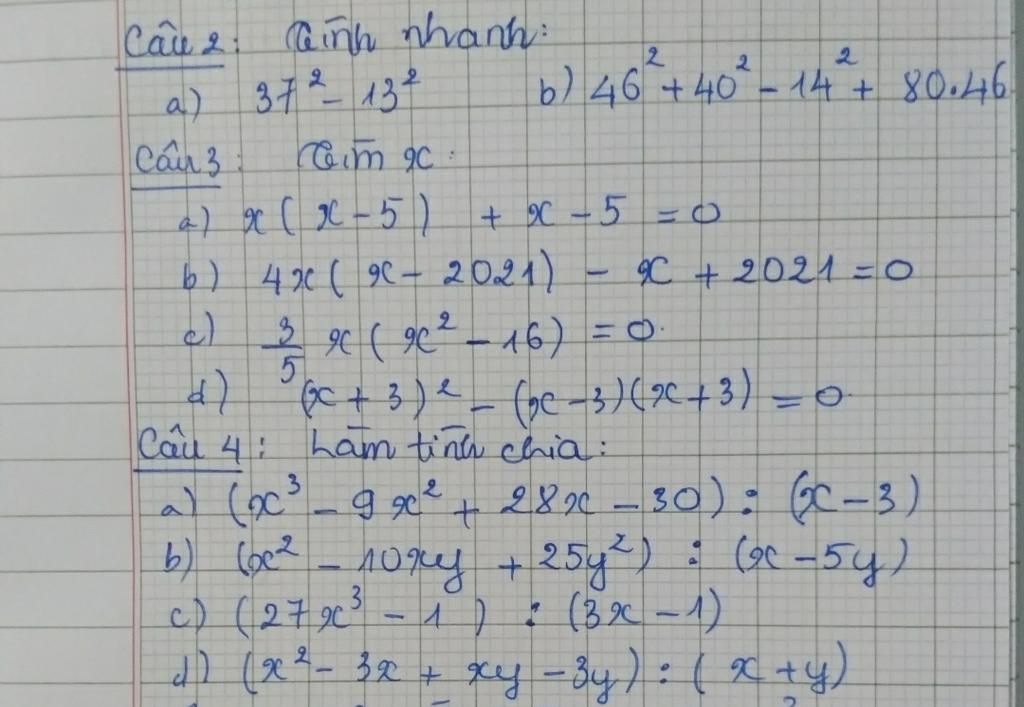 Câu 2: Tính nhanh:
a) 37² - 13² b) 46² + 40² - 14² + 80.46
Câu 3: Tìm x.
a) x ( x - 5 ) + x - 5 = 0
b) 4x ( x - 2021) - x + 2021 = 0
c) 3/5 x ( x² - 16) = 0.
d) (x + 3)² - (x - 3)(x + 3) = 0.
Câu 4: Làm tính chia:
a) (x³ - 9x² + 28x - 30) : (x - 3)
b) (x² - 10xy + 25y²) : (x - 5y)
c) (27x³ - 1 ) : (3x - 1)
d) (x² - 3x + xy - 3y) : ( x + y)